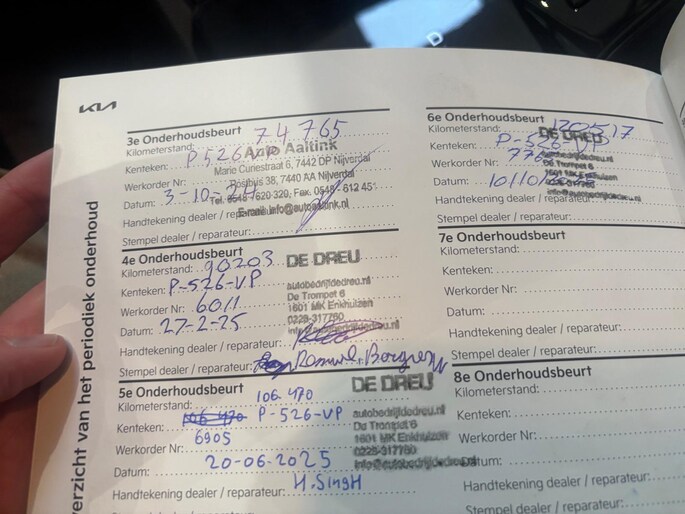 KIA
Overzicht van het periodiek onderhoud
3e Onderhoudsbeurt
Kilometerstand: 74765
Kenteken: P526VP
Werkorder Nr:
Datum: 3-10-24
Handtekening dealer / reparateur:
Stempel dealer / reparateur:
Auto Aaltink
Marie Curiestraat 6, 7442 DP Nijverdal
Postbus 38, 7440 AA Nijverdal
Tel. 0548-620 320, Fax. 0548-612 45
E-mail: info@autoaaltink.nl
4e Onderhoudsbeurt
Kilometerstand: 90203
Kenteken: P-526-VP
Werkorder Nr: 6011
Datum: 27-2-25
Handtekening dealer / reparateur:
Stempel dealer / reparateur:
DE DREU
autobedrijfdedreu.nl
De Trompet 6
1601 MK Enkhuizen
0228-317760
info@autobedrijfdedreu.nl
5e Onderhoudsbeurt
Kilometerstand: 106.470
Kenteken: 106 470 P-526-VP
Werkorder Nr: 6905
Datum: 20-06-2025
Handtekening dealer / reparateur: H.Singh
DE DREU
autobedrijfdedreu.nl
De Trompet 6
1601 MK Enkhuizen
0228-317760
info@autobedrijfdedreu.nl
6e Onderhoudsbeurt
Kilometerstand: 120517
Kenteken: P-526-VP
Werkorder Nr:
Datum: 10/10/
Handtekening dealer / reparateur:
Stempel dealer / reparateur:
DE DREU
autobedrijfdedreu.nl
De Trompet 6
1601 MK Enkhuizen
0228-317760
info@autobedrijfdedreu.nl
7e Onderhoudsbeurt
Kilometerstand:
Kenteken:
Werkorder Nr:
Datum:
Handtekening dealer / reparateur:
Stempel dealer / reparateur:
8e Onderhoudsbeurt
Kilometerstand:
Kenteken:
Werkorder Nr:
Datum:
Handtekening dealer / reparateur:
Stempel dealer / reparateur: